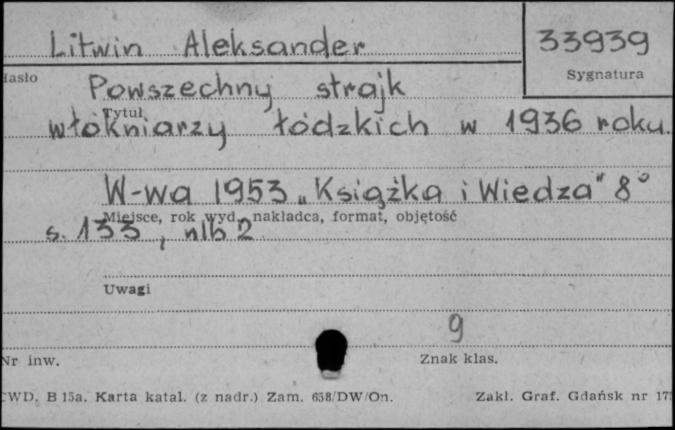 Litwin Aleksander
33939
Hasło
Sygnatura
Powszechny strajk
Tytuł
włókniarzy łódzkich w 1936 roku.
W-wa 1953 „Książka i Wiedza" 8°
Miejsce, rok wyd., nakładca, format, objętość
s. 133, nlb 2
Uwagi
9
Nr inw.
Znak klas.
CWD. B 15a. Karta katal. (z nadr.) Zam. 658/DW/On.
Zakł. Graf. Gdańsk nr 175